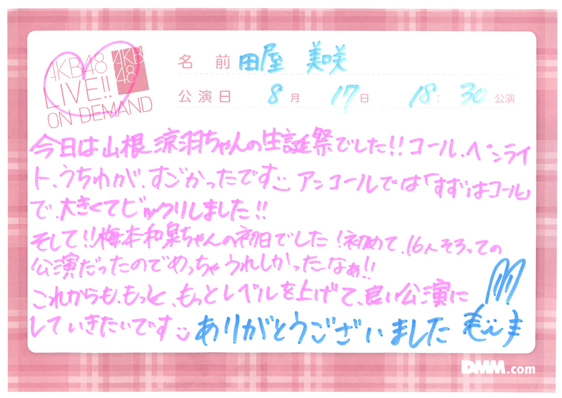 AKB48
LIVE!!
ON DEMAND
AKB
48
名前 田屋 美咲
公演日 8月 17日 18:30公演
今日は山根涼羽ちゃんの生誕祭でした!!コール、ペンライ
ト、うちわが、すごかったです アンコールでは「すずはコール」
で、大きくてビックリしました!!
そして!!梅本和泉ちゃんの初日でした!初めて、16人そろっての
公演だったのでめっちゃうれしかったなぁ!!
これからも、もっと、もっとレベルを上げて、良い公演に
していきたいです ありがとうございました
DMM.com